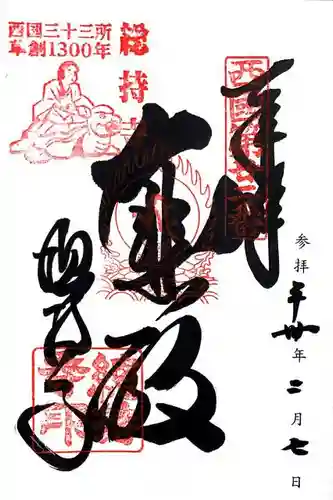 西國三十三所
草創1300年
総持寺
参拝 平卅年二月七日
奉拝
西國第廿二番
大悲殿
総持寺